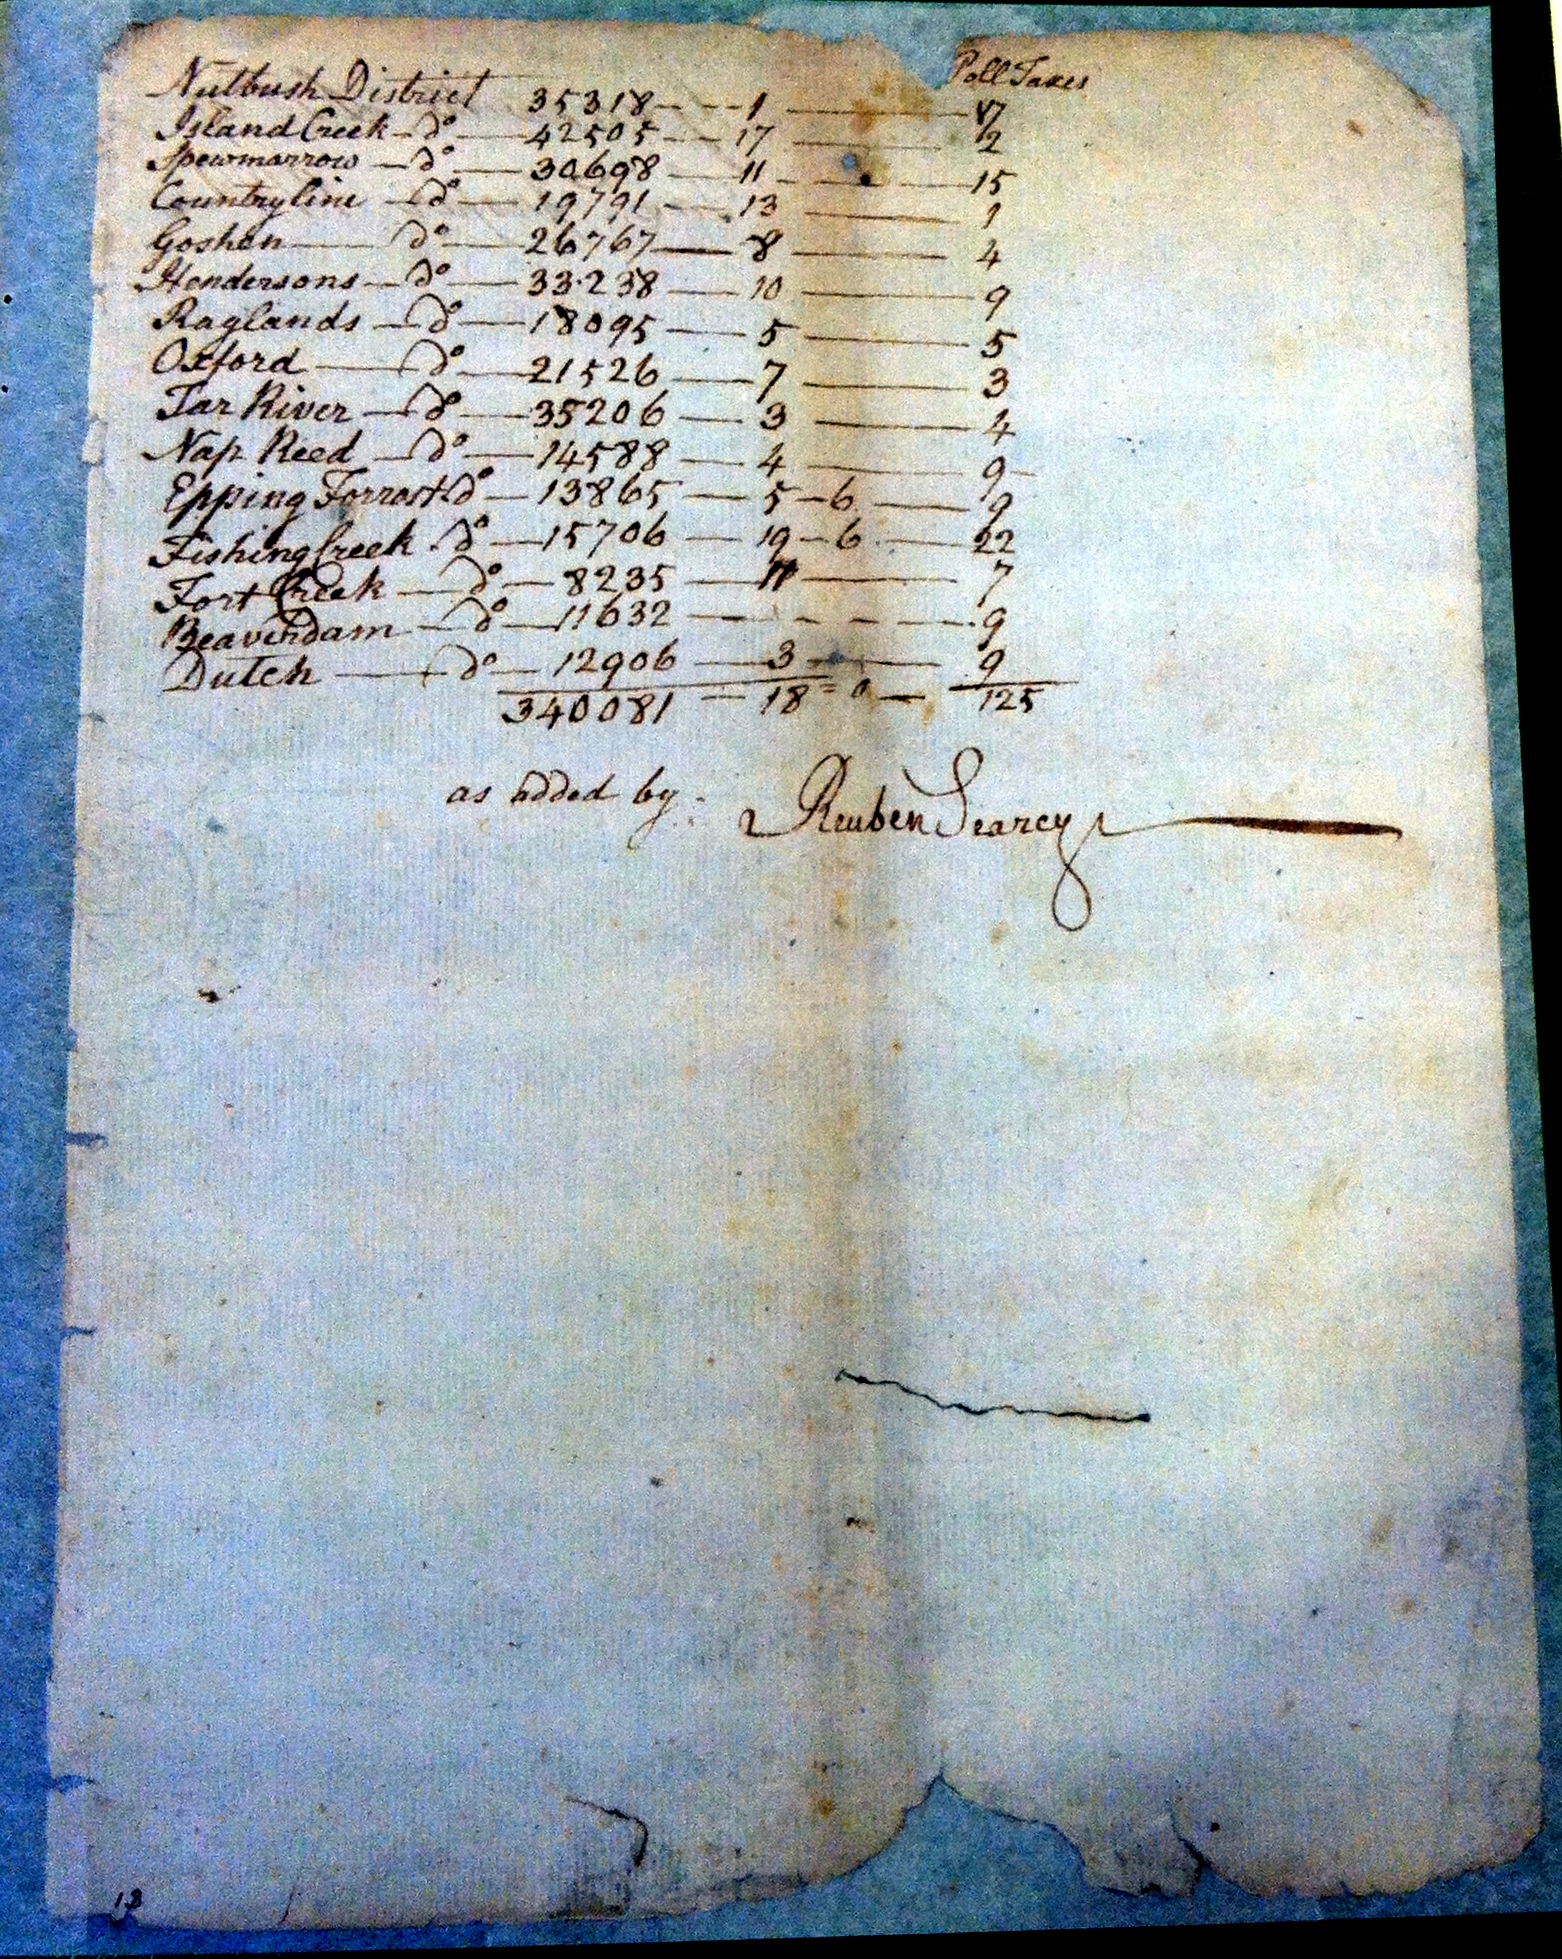 Poll Taxes
Nutbush District 35318 - - - 1 — 17
Island Creek - do — 42505 — 17 — 2
Spewmarrow — do — 30698 — 11 — 15
Countryline — do — 19791 — 13 — 1
Goshen — do — 26767 — 8 — 4
Hendersons — do — 33238 — 10 — 9
Raglands — do — 18095 — 5 — 5
Oxford — do — 21526 — 7 — 3
Tar River — do — 35206 — 3 — 4
Nap Reed — do — 14588 — 4 — 9
Epping Forrest do — 13865 — 5 - 6 — 9
Fishing Creek do — 15706 — 19 - 6 — 22
Fort Creek — do — 8235 — 11 — 7
Beaverdam — do — 11632 — - - - 9
Dutch — do — 12906 — 3 — 9
340081 — 18 = 0 — 125
as added by Reuben Searcy